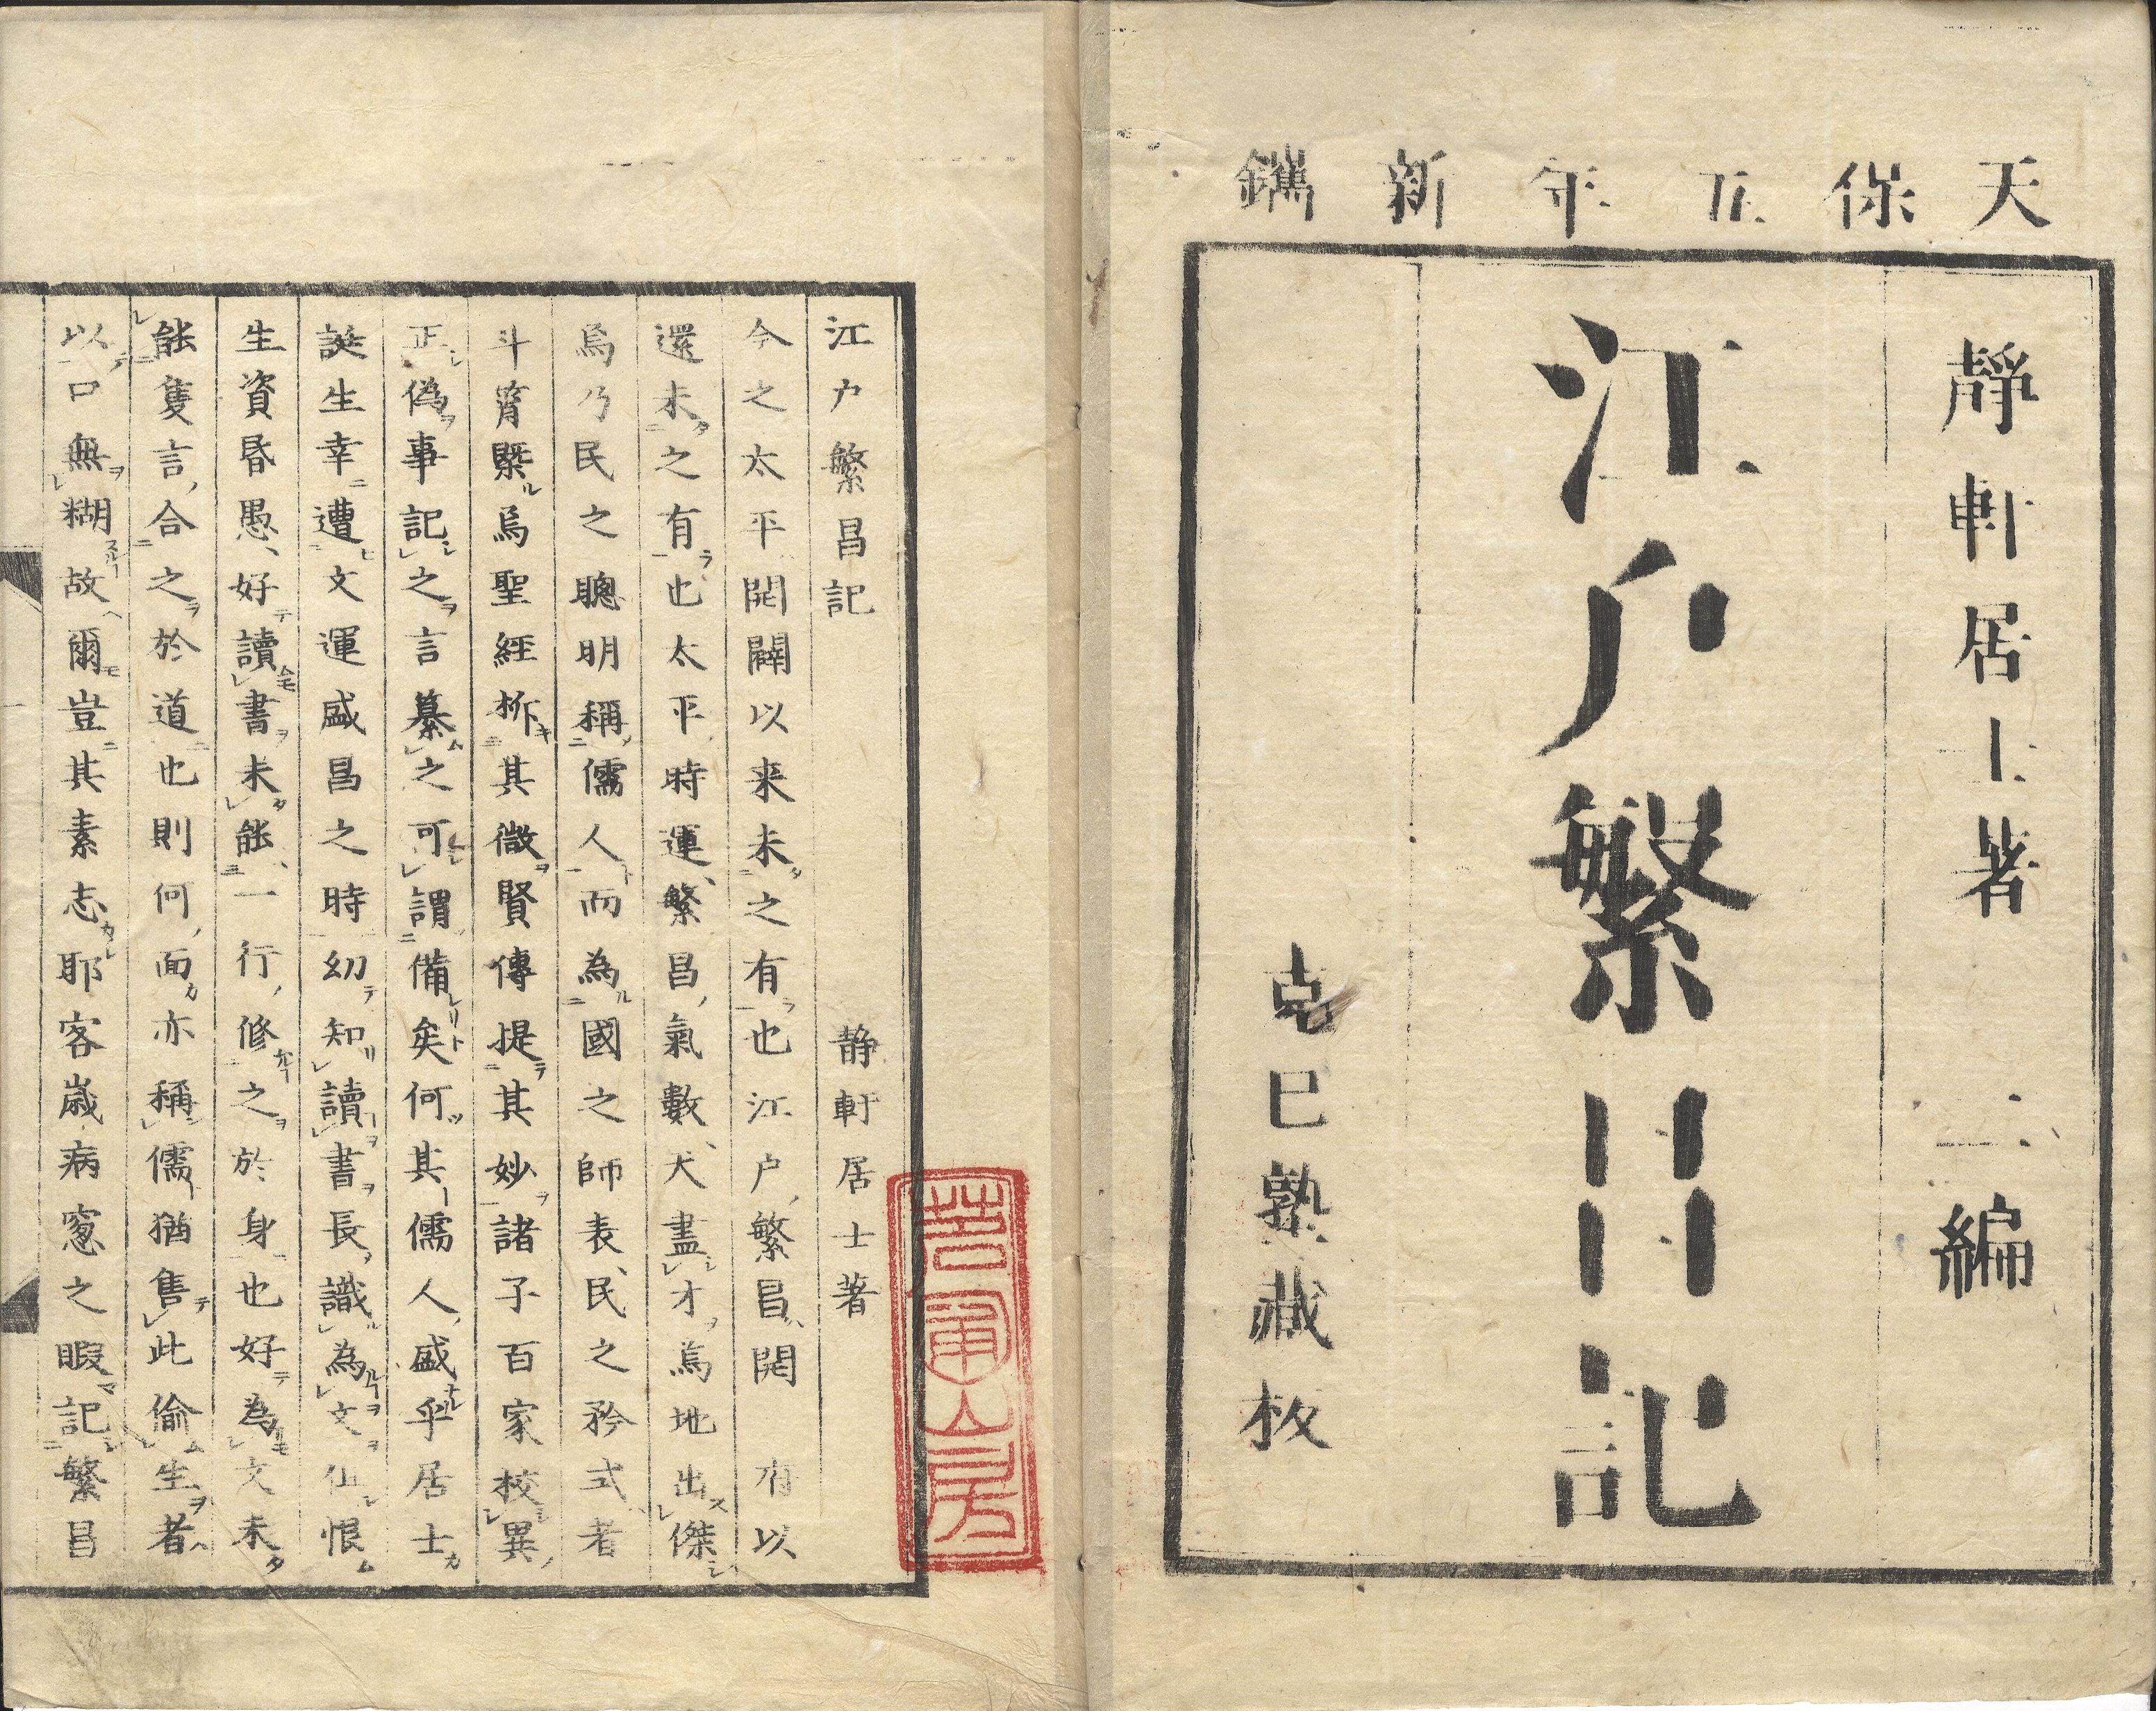 天保五年新鐫
靜軒居士著 二編
江戶繁昌記
克己塾藏板
江戶繁昌記 静軒居士著
今之太平開闢以来未之有也江戶繁昌開 有以
還未之有也太平時運繁昌氣數犬盡才焉地出傑
焉乃民之聰明稱儒人而為國之師表民之矜式者
斗筲槩焉聖經柝其微賢傳提其妙諸子百家校異
正偽事記之言纂之可謂備矣何其儒人盛乎居士
誕生幸遭文運盛昌之時幼知讀書長識為文但恨
生資昏愚好讀書未能一行修之於身也好為文未
能隻言合之於道也則何面亦稱儒猶售此偷生者
以口無糊故爾豈其素志耶客歳病窓之暇記繁昌